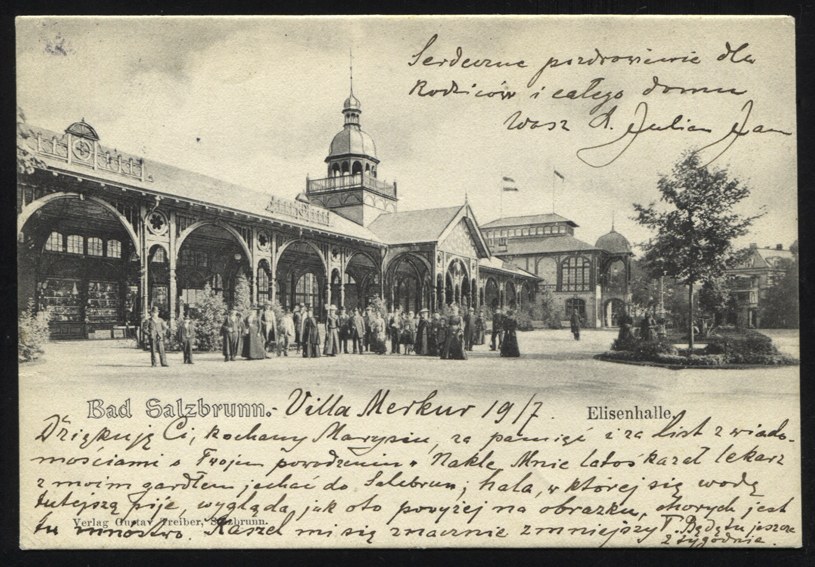 Serdeczne pozdrowienie dla
Rodziców i całego domu
Wasz X. Julian Jan
Bad Salzbrunn. - Villa Merkur 19/7.
Elisenhalle.
Dziękuję Ci, kochany Marysiu, za pamięć i za list z wiado-
mościami o Twojem powodzeniu w Nakle. Mnie latoś kazał lekarz
z moim gardłem jechać do Salzbrun; hala, w której się wodę
tutejszą pije, wygląda, jak oto powyżej na obrazku, chorych jest
tu mnóstwo. Kaszel mi się znacznie zmniejszył. Będę tu jeszcze
2 tygodnie.
Verlag Gustav Treiber, Salzbrunn.